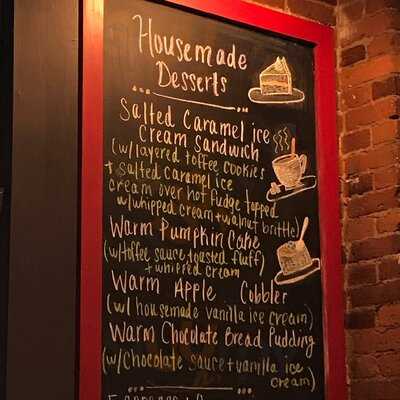 Housemade
Desserts
Salted Caramel ice
Cream Sandwich
(w/layered toffee cookies
+ Salted caramel ice
cream over hot fudge topped
w/whipped cream + walnut brittle)
Warm Pumpkin Cake
(w/toffee sauce, toasted fluff)
+ whipped cream
Warm Apple Cobbler
(w/ housemade vanilla ice cream)
Warm Chocolate Bread Pudding
(w/chocolate sauce + vanilla ice
cream)